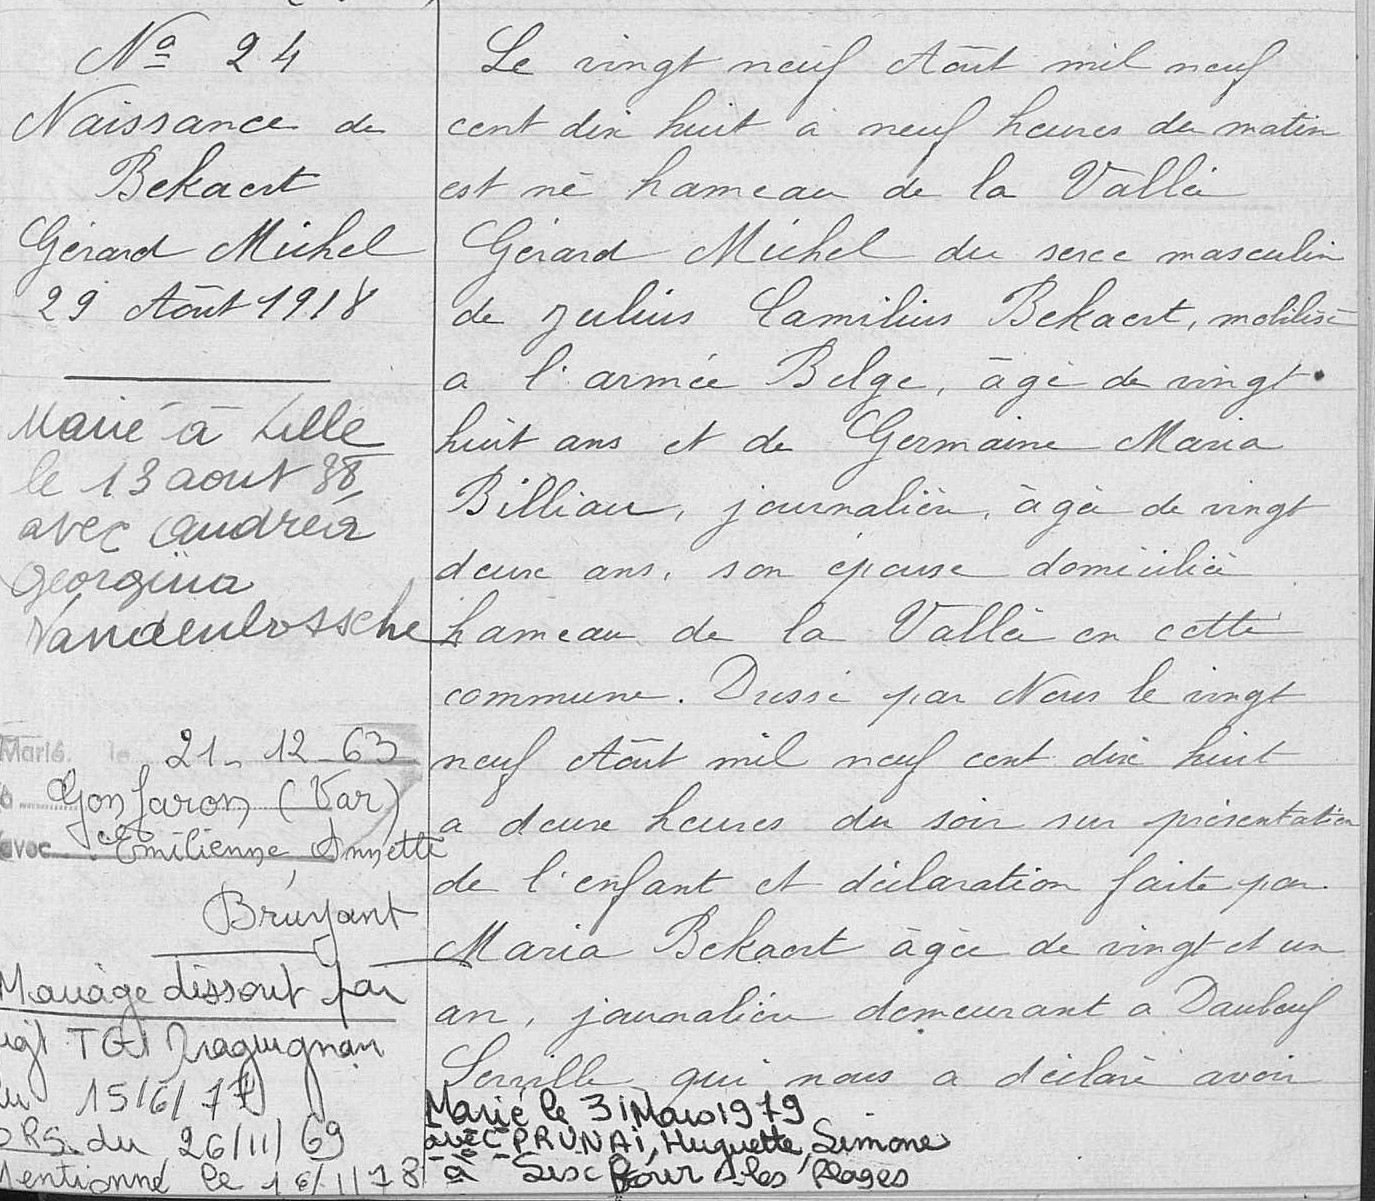 Nº 24
Naissance de
Bekaert
Gérard Michel
29 Août 1918
Marié à Lille
le 13 aout 38
avec Andréa
Georgina
Vandenbossche
Marié le 21-12-63
à Gonfaron (Var)
avec Emilienne Annette
Bruyant
Mariage dissout par
jugt TGI Draguignan
du 15/6/77
ORS. du 26/11/69
Mentionné le 16/1/78
Le vingt neuf Août mil neuf
cent dix huit à neuf heures du matin
est né hameau de la Vallée
Gérard Michel du sexe masculin
de Julius Camilius Bekaert, mobilisé
a l'armée Belge, âgé de vingt
huit ans et de Germaine Maria
Billiau, journalière, âgée de vingt
deux ans, son épouse domiciliée
hameau de la Vallée en cette
commune. Dressé par Nous le vingt
neuf Août mil neuf cent dix huit
a deux heures du soir sur présentation
de l'enfant et déclaration faite par
Maria Bekaert âgée de vingt et un
an, journalière demeurant a Daubeuf
Serville qui nous a déclaré avoir
Marié le 31 Mars 1979
avec PRUNAI, Huguette, Simone
à Six Four les Plages